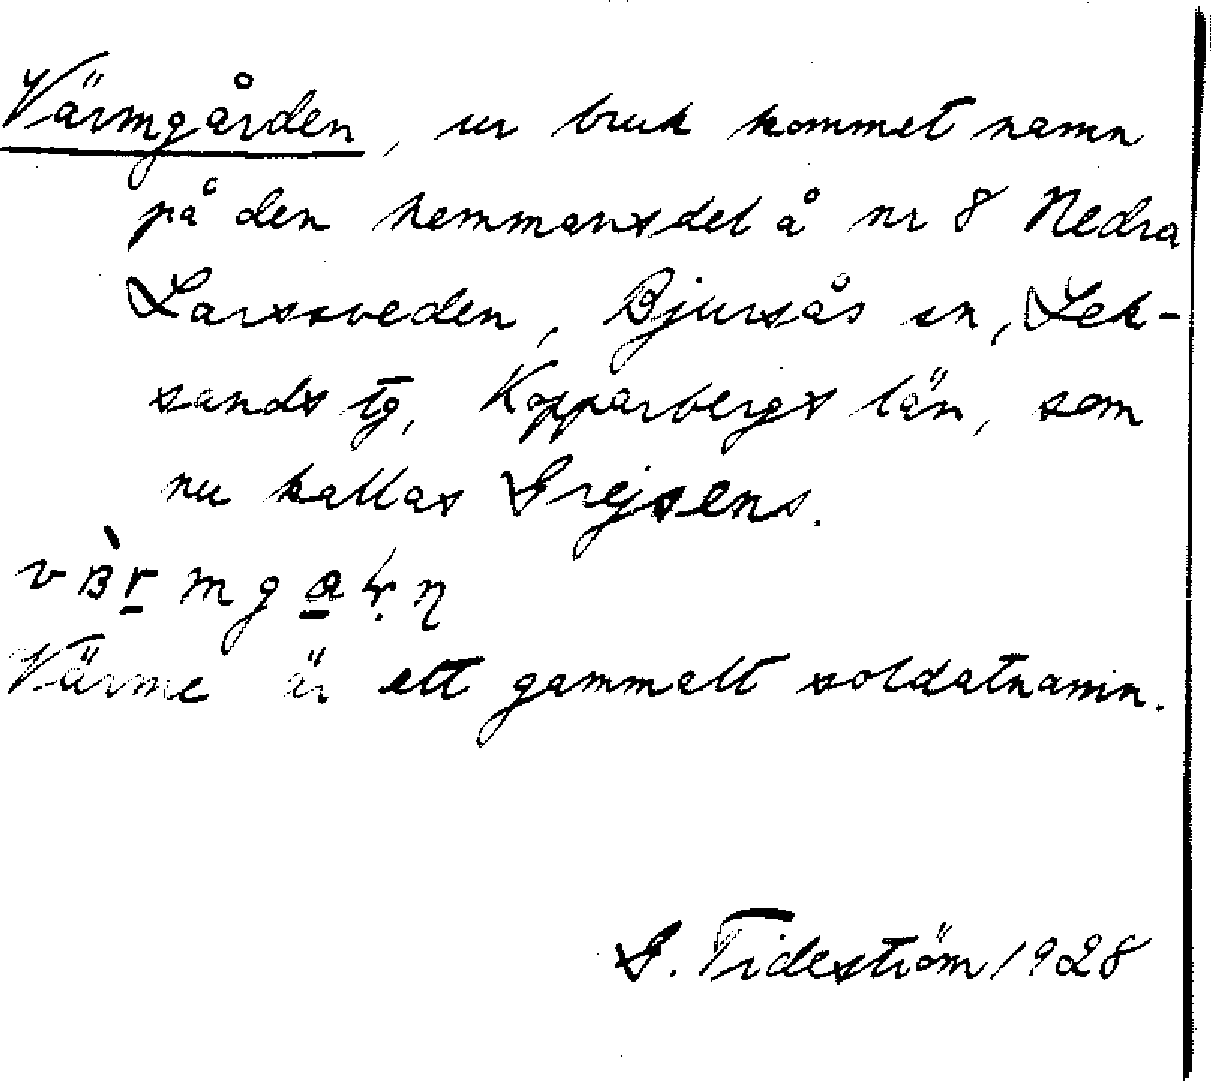 Värmgården, ur bruk kommet namn
på den hemmansdel å nr 8 Nedra
Larssveden, Bjursås sn, Lek-
sands tg, Kopparbergs län, som
nu kallas Grejsens.
Värme är ett gammalt soldatnamn.
G. Tideström 1928